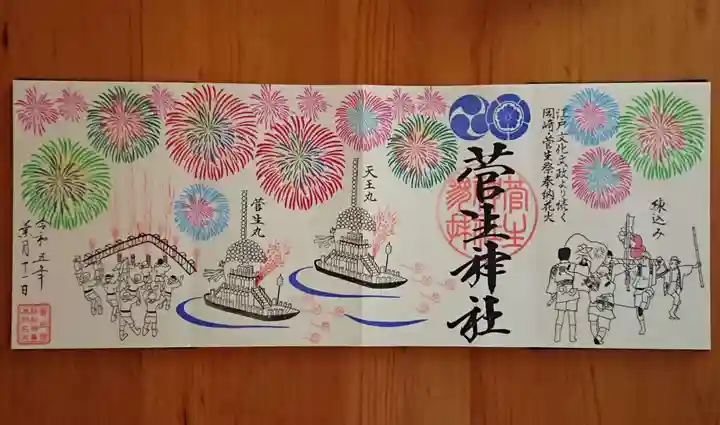 練込み
江戸文化文政より続く
岡崎菅生祭奉納花火
菅生神社
天王丸
菅生丸
令和五年
葉月十二日